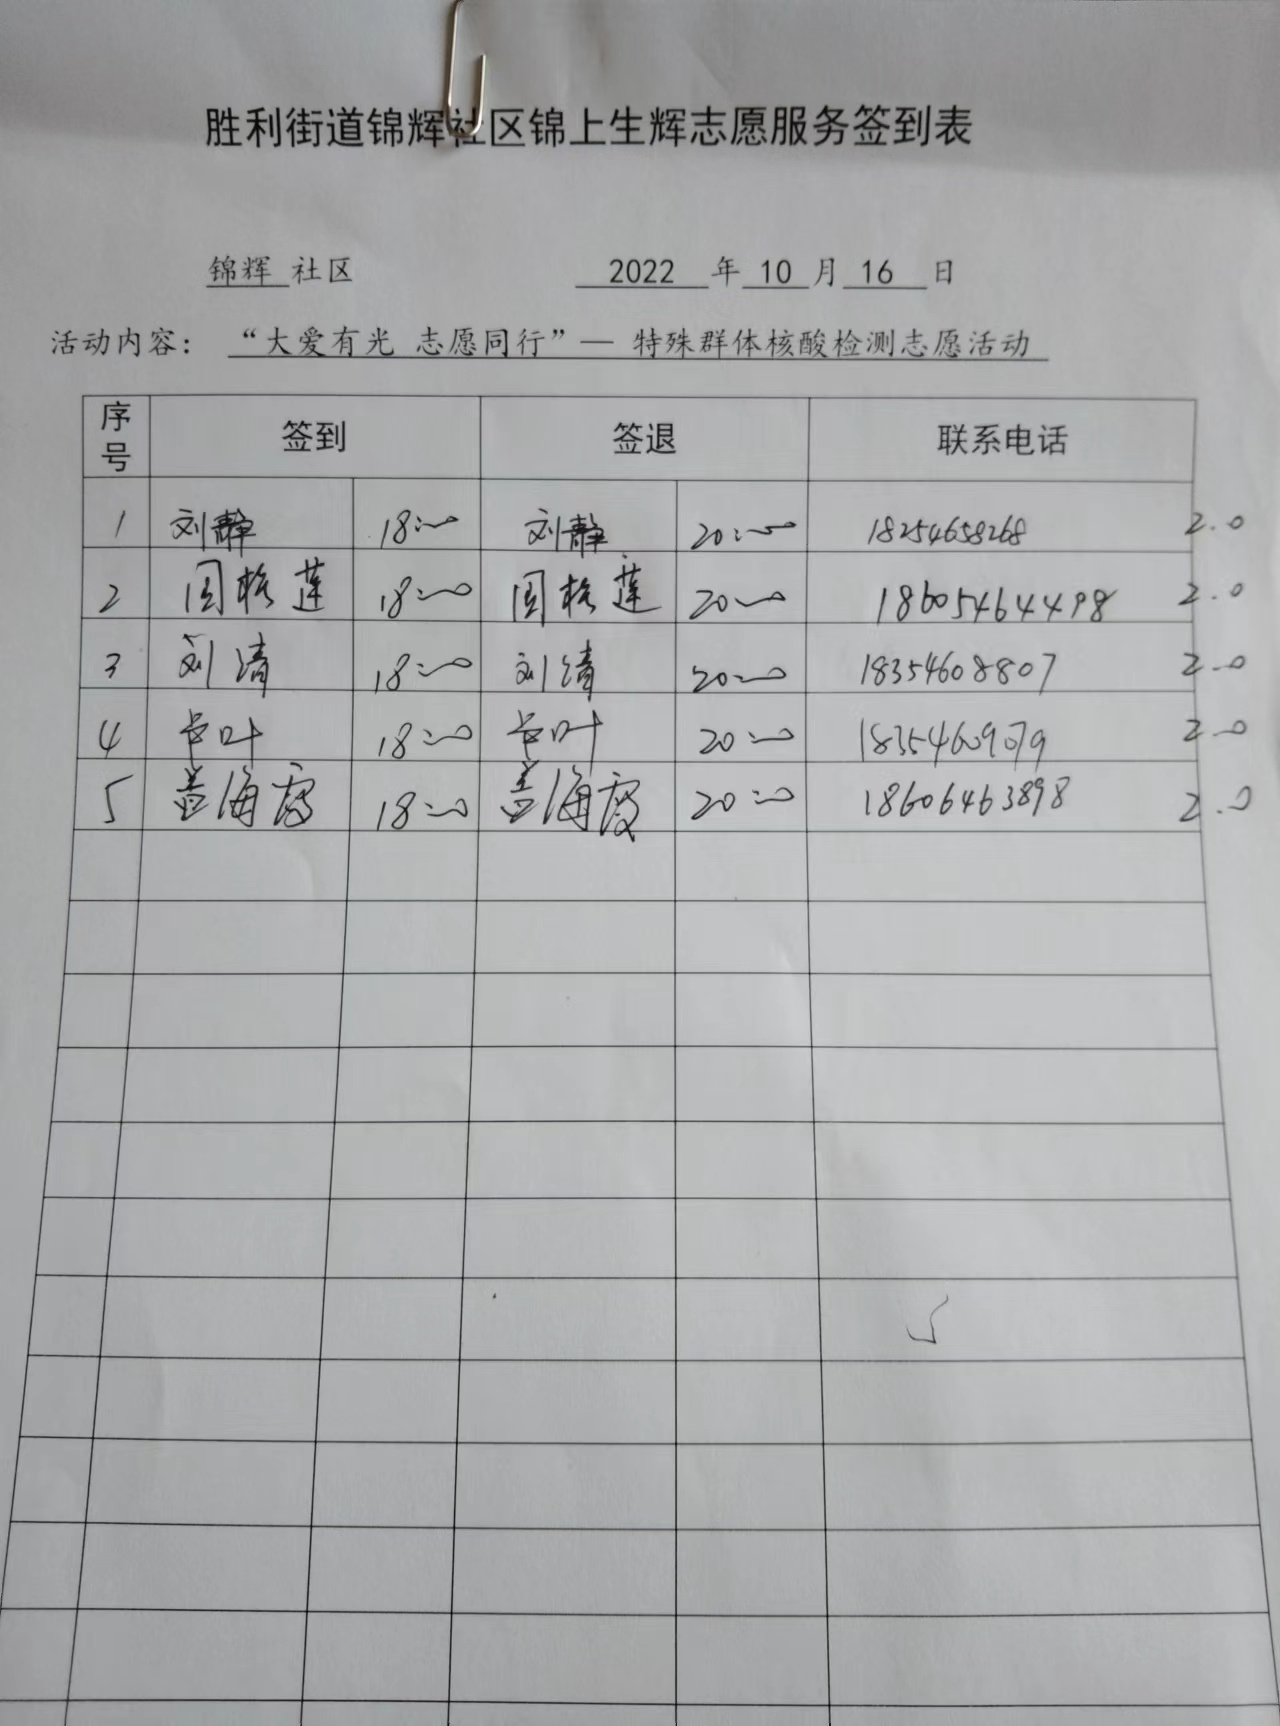 胜利街道锦辉社区锦上生辉志愿服务签到表
锦辉 社区 2022 年 10 月 16 日
活动内容： “大爱有光 志愿同行”— 特殊群体核酸检测志愿活动
序号 签到 签退 联系电话
1 刘静 18:00 刘静 20:00 18254658268 2.0
2 周格莲 18:00 周格莲 20:00 18605464498 2.0
3 刘清 18:00 刘清 20:00 18354608807 2.0
4 卞叶 18:00 卞叶 20:00 18354609079 2.0
5 盖海霞 18:00 盖海霞 20:00 18606463898 2.0